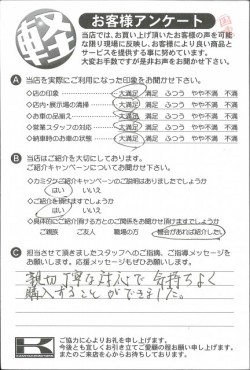 軽
お客様アンケート
当店では、お買い上げ頂いたお客様の声を可能
な限り現場に反映し、お客様により良い商品と
サービスを提供する事に努めています。
大変お手数ですが是非お声をお聞かせ下さい。
A 当店を実際にご利用になった印象をお聞かせ下さい。
◇店の印象 大満足 満足 ふつう やや不満 不満
◇店内・展示場の清掃 大満足 満足 ふつう やや不満 不満
◇お車の品揃え 大満足 満足 ふつう やや不満 不満
◇営業スタッフの対応 大満足 満足 ふつう やや不満 不満
◇納車時のお車の状態 大満足 満足 ふつう やや不満 不満
B 当店はご紹介を大切にしております。
ご紹介キャンペーンについてお聞かせ下さい。
◇カミタケご紹介キャンペーンのご説明はありましたでしょうか
はい いいえ
◇ご紹介を頂けますでしょうか
はい いいえ
◇具体的にご紹介頂ける方とのご関係をお聞かせ頂けますでしょうか
ご親族 ご友人 職場の方 機会があれば紹介したい
C 担当させて頂きましたスタッフへのご指摘、ご指導メッセージを
お願いします。応援メッセージもぜひお願いします。
親切丁寧な対応で気持ちよく
購入することができました。
K
ご協力に心よりお礼を申し上げます。
今後とも宜しくお引き立てご愛顧の程お願い申し上げます。
またのご来店を心からお待ちしております。